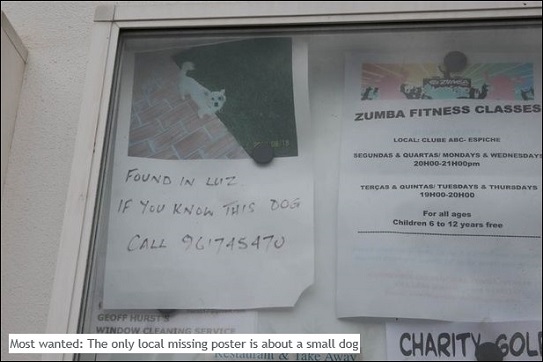 FOUND IN LUZ.
IF YOU KNOW THIS DOG
CALL 961745470
ZUMBA FITNESS CLASSES
LOCAL: CLUBE ABC- ESPICHE
SEGUNDAS & QUARTAS/ MONDAYS & WEDNESDAYS
20H00-21H00pm
TERÇAS & QUINTAS/ TUESDAYS & THURSDAYS
19H00-20H00
For all ages
Children 6 to 12 years free
GEOFF HURST'S
WINDOW CLEANING SERVICE
Restaurant & Take Away
CHARITY GOL
Most wanted: The only local missing poster is about a small dog